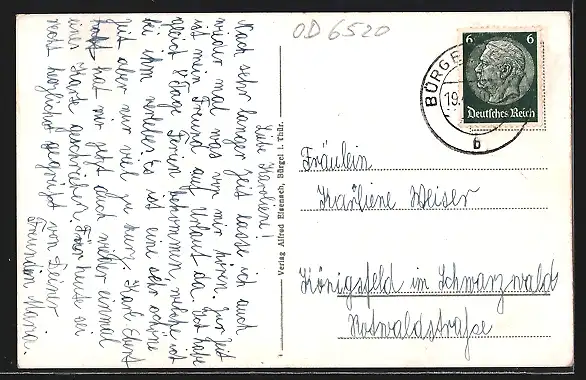 OD 6520
Liebe Karliene!
Nach sehr langer Zeit lasse ich auch
wieder mal was von mir hören. Zur Zeit
ist mein Freund auf Urlaub da. Erst habe
8 Tage Ferien bekommen welche ich
bei ihm verlebe. Es ist eine sehr schöne
Zeit aber nur viel zu kurz. Karl Ehrt
hat mir jetzt auch wieder einmal
eine Karte geschrieben. Für heute sei
recht herzlichst gegrüßt von Deiner
Freundin Maria.
Verlag Alfred Eisenach, Bürgel i. Thür.
BÜRGE
19.
b
6 6
Deutsches Reich
Fräulein
Karliene Weiser
Königsfeld im Schwarzwald
Rotwaldstraße